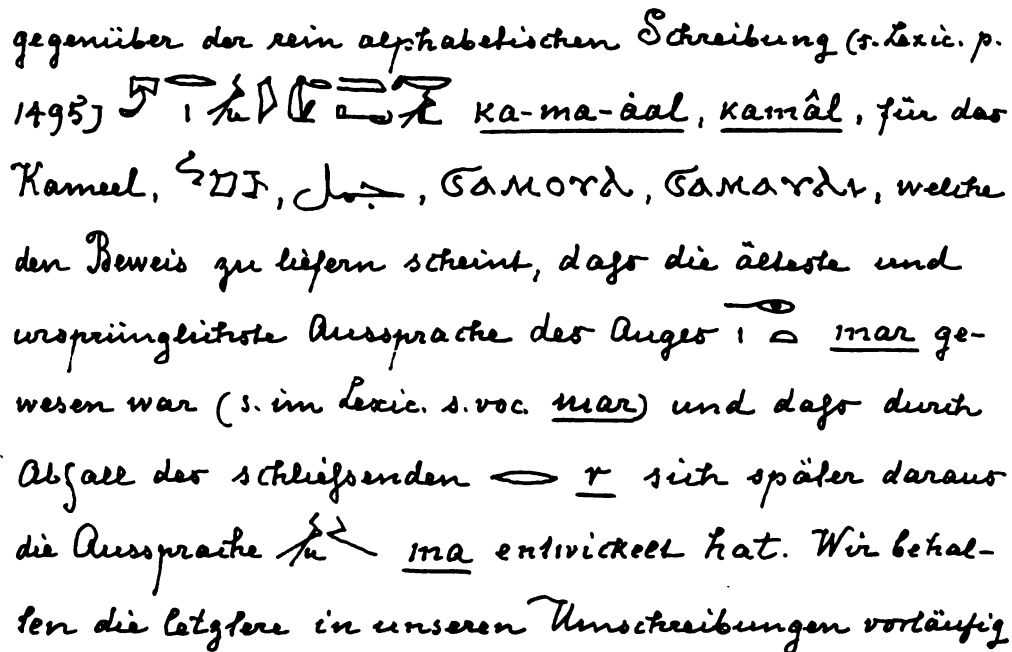 gegenüber der rein alphabetischen Schreibung (s. Lexic. p.
1495) ka-ma-áal, kamâl, für das
Kameel, גמל, جمل, ϬⲀⲘⲞⲨⲖ, ϬⲀⲘⲀⲨⲖⲒ, welche
den Beweis zu liefern scheint, daſs die älteste und
ursprünglichste Aussprache des Auges mar ge-
wesen war (s. im Lexic. s. voc. mar) und daſs durch
Abfall des schlieſsenden r sich später daraus
die Aussprache ma entwickelt hat. Wir behal-
ten die letztere in unseren Umschreibungen vorläufig